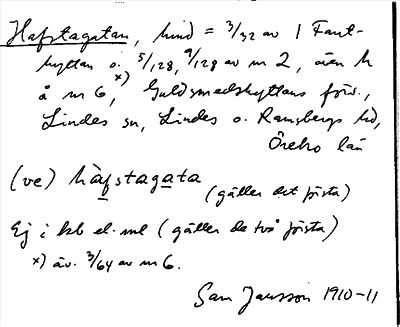 Hafstagatan, hmd = 3/32 av 1 Fant-
hyttan o. 5/128, 9/128 av nr 2, även h
x)
å nr 6, Guldsmedshyttans förs.,
Lindes sn, Lindes o. Ramsbergs hd,
Örebro län
(ve) hàfstagata (gäller det första)
Ej i kb el. ml (gäller de två första)
x) äv. 3/64 av nr 6.
Sam Jansson 1910-11